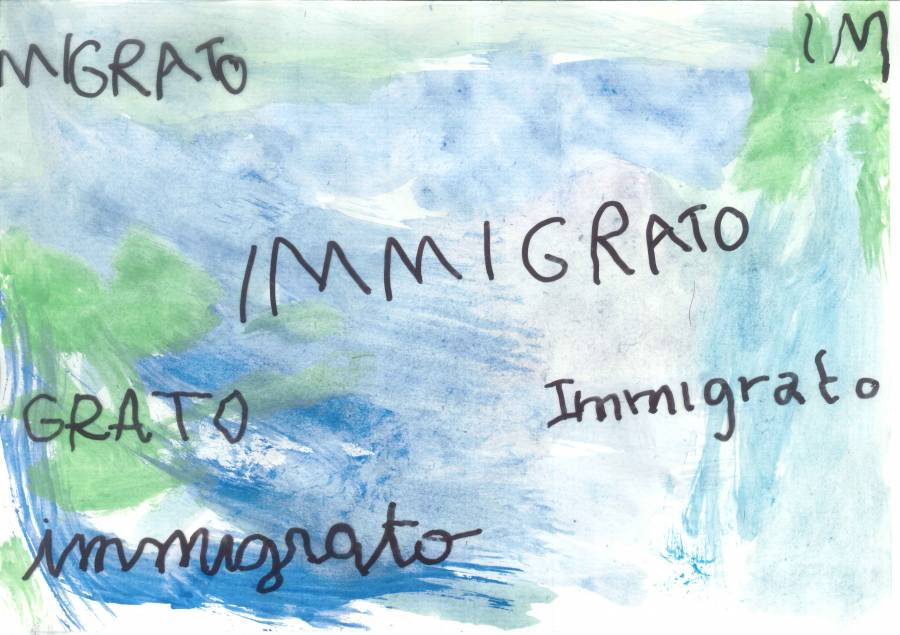 MIGRATO
IM
IMMIGRATO
Immigrato
GRATO
immigrato